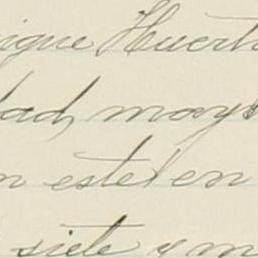 igue Huert
dad, mayo
n este en
siete y m